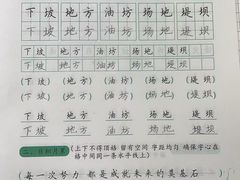 下坡 地方 油坊 场地 堤坝
下坡 地方 油坊 场地 堤坝
下坡 地方 油坊 场地 堤坝
(下坡) (地方) (油坊) (场地) (堤坝)
(下坡) (地方) (油坊) (场地) (堤坝)
下坡 地方 油坊 场地 堤坝
二、日积月累 (上下不得顶格 留有空间 字距均匀 确保字心在
格中间同一条水平线上)
每一次努力 都是成就未来的奠基石